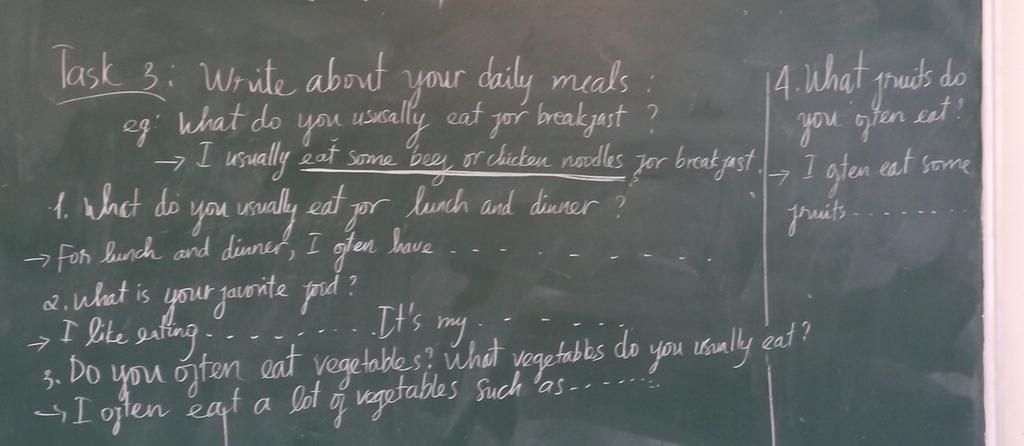 Task 3: Write about your daily meals:
eg: What do you ususally eat for breakfast ?
→ I usually eat some beef or chicken noodles for breakfast.
1. What do you usually eat for lunch and dinner ?
→ For lunch and dinner, I often have . - - . - - - - - .
2. What is your favorite food?
→ I like eating. - - - - - - - . It's my . - - - - -
3. Do you often eat vegetables? What vegetables do you usually eat?
→ I often eat a lot of vegetables such as - - - - - - -
4. What fruits do
you often eat?
→ I often eat some
fruits - - - - - - - -